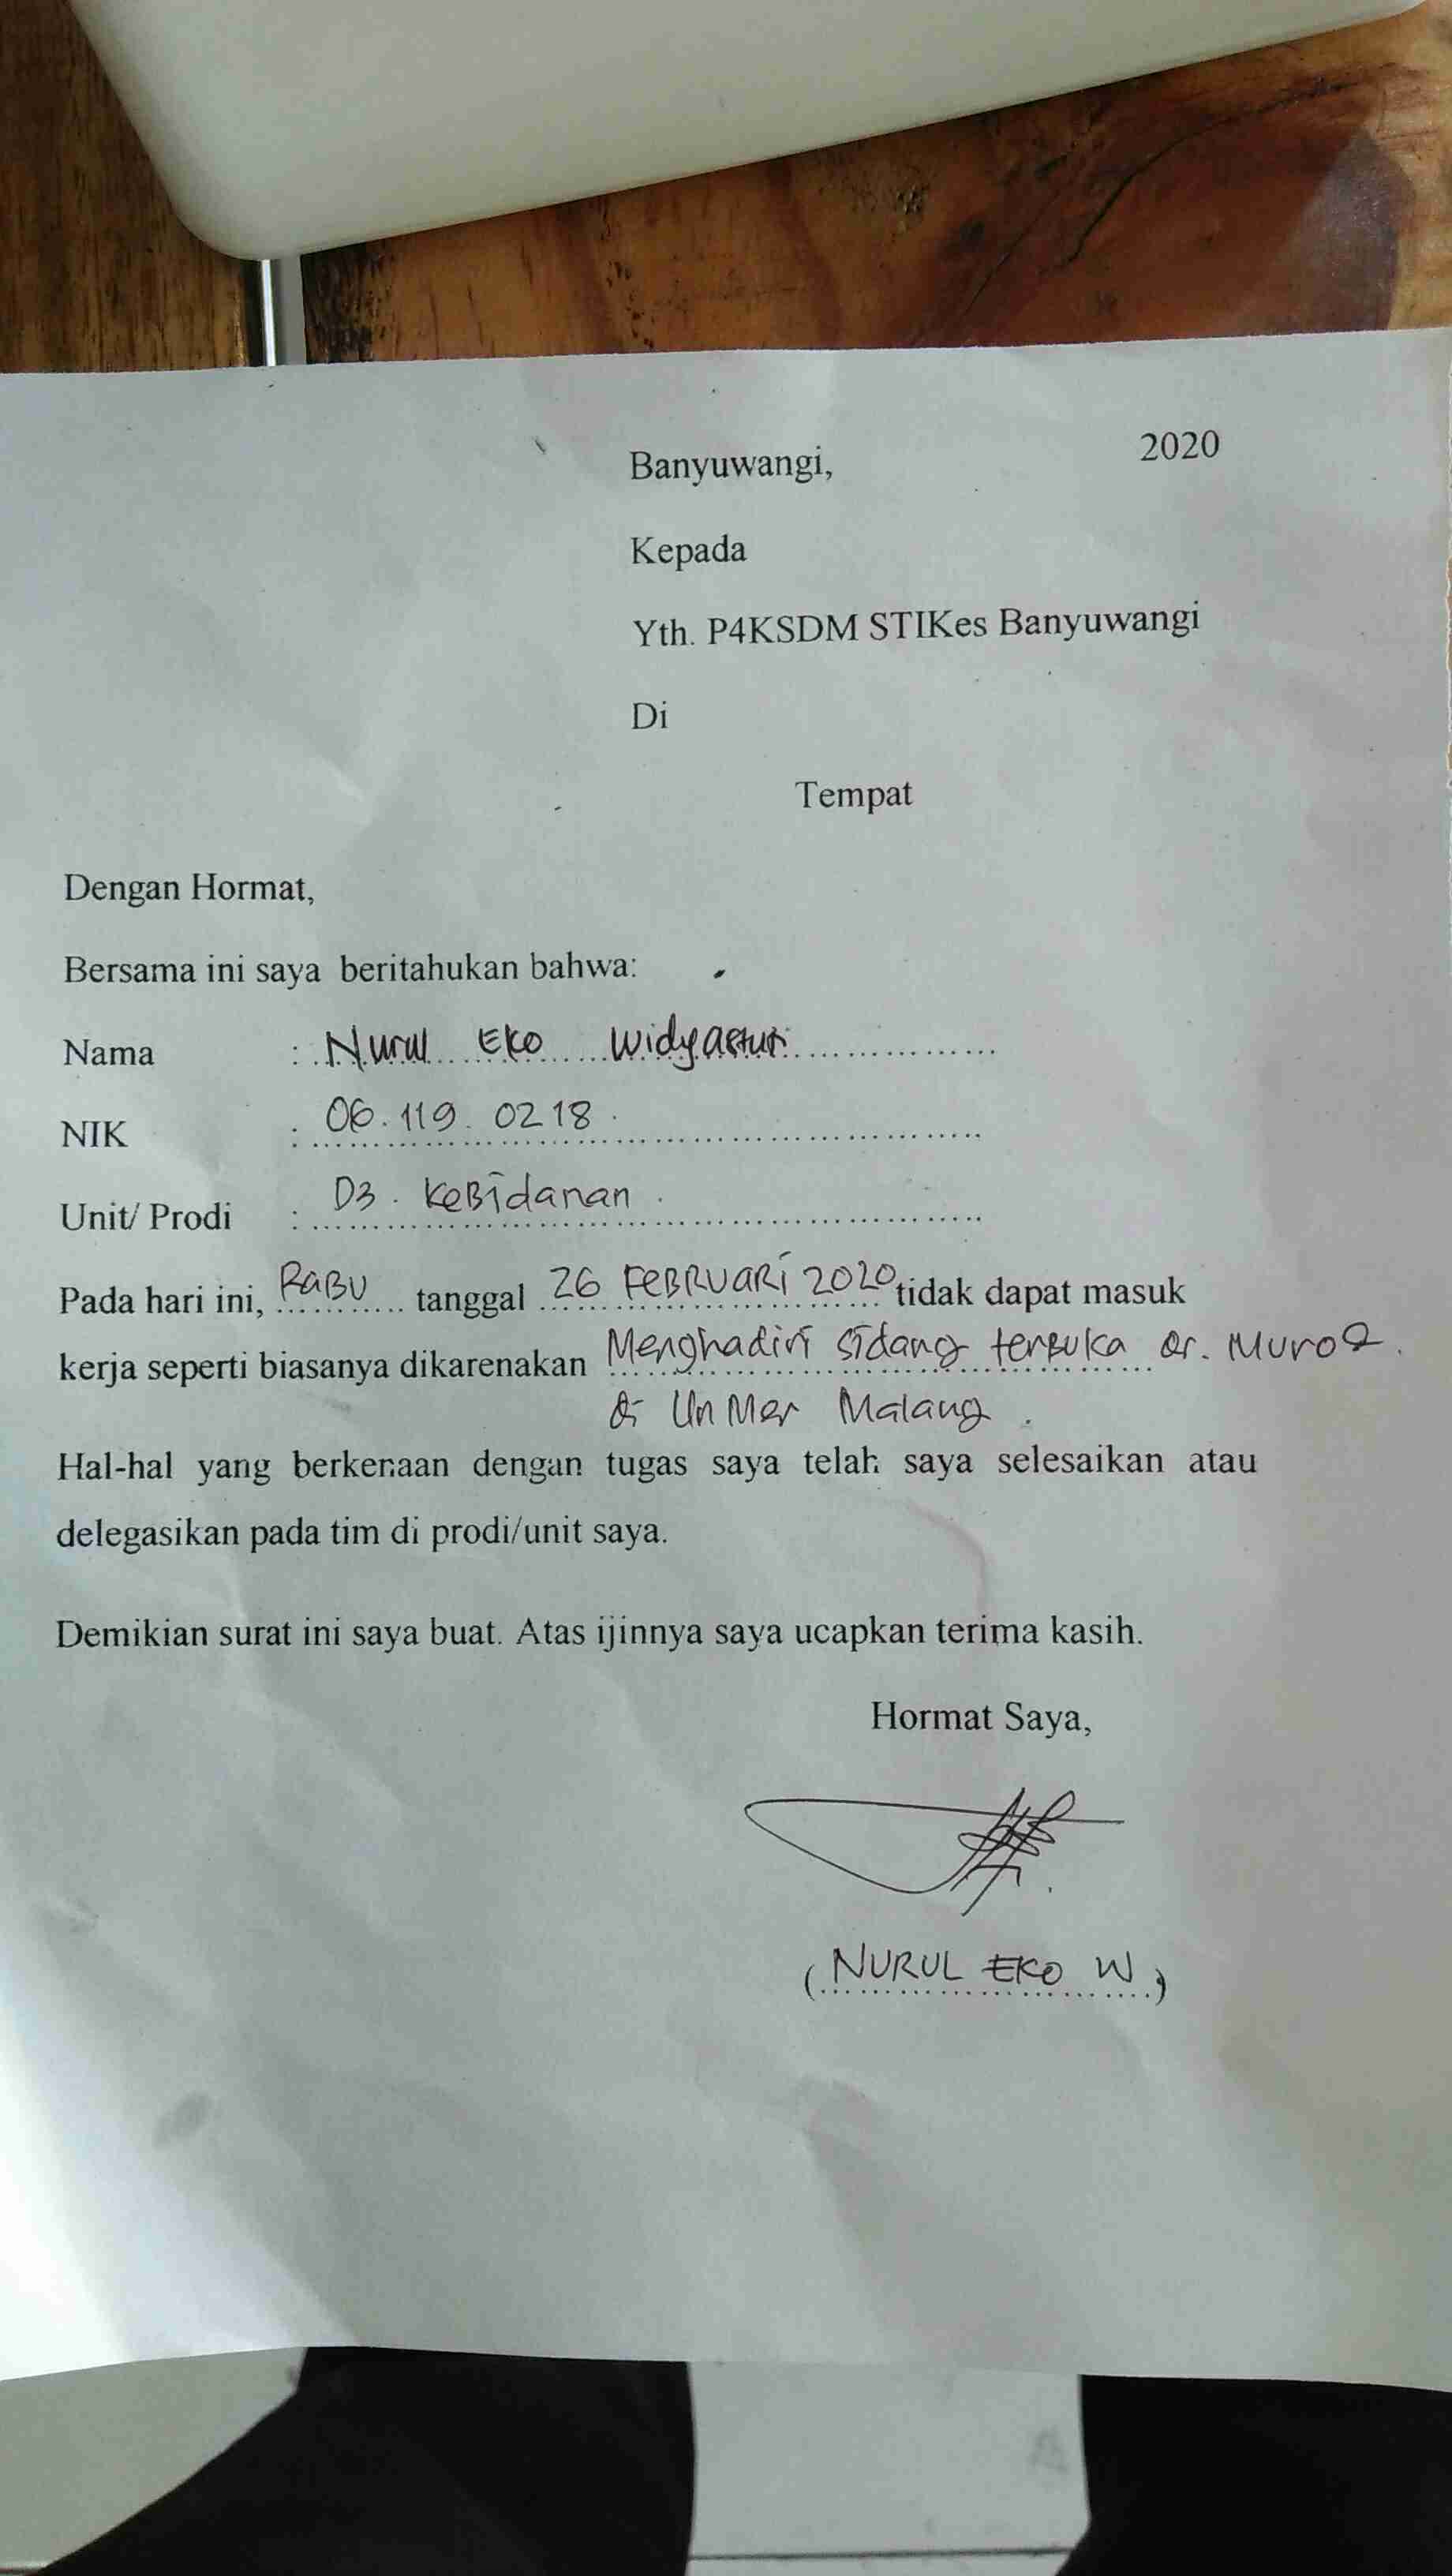 Banyuwangi, 2020
Kepada
Yth. P4KSDM STIKes Banyuwangi
Di
Tempat
Dengan Hormat,
Bersama ini saya beritahukan bahwa:
Nama : Nurul Eko Widyastuti
NIK : 06.119.0218.
Unit/ Prodi : D3. Kebidanan.
Pada hari ini, Rabu tanggal 26 Februari 2020 tidak dapat masuk
kerja seperti biasanya dikarenakan Menghadiri sidang terbuka Dr.
di UnMer Malang.
Hal-hal yang berkenaan dengan tugas saya telah saya selesaikan atau
delegasikan pada tim di prodi/unit saya.
Demikian surat ini saya buat. Atas ijinnya saya ucapkan terima kasih.
Hormat Saya,
(NURUL EKO W.)